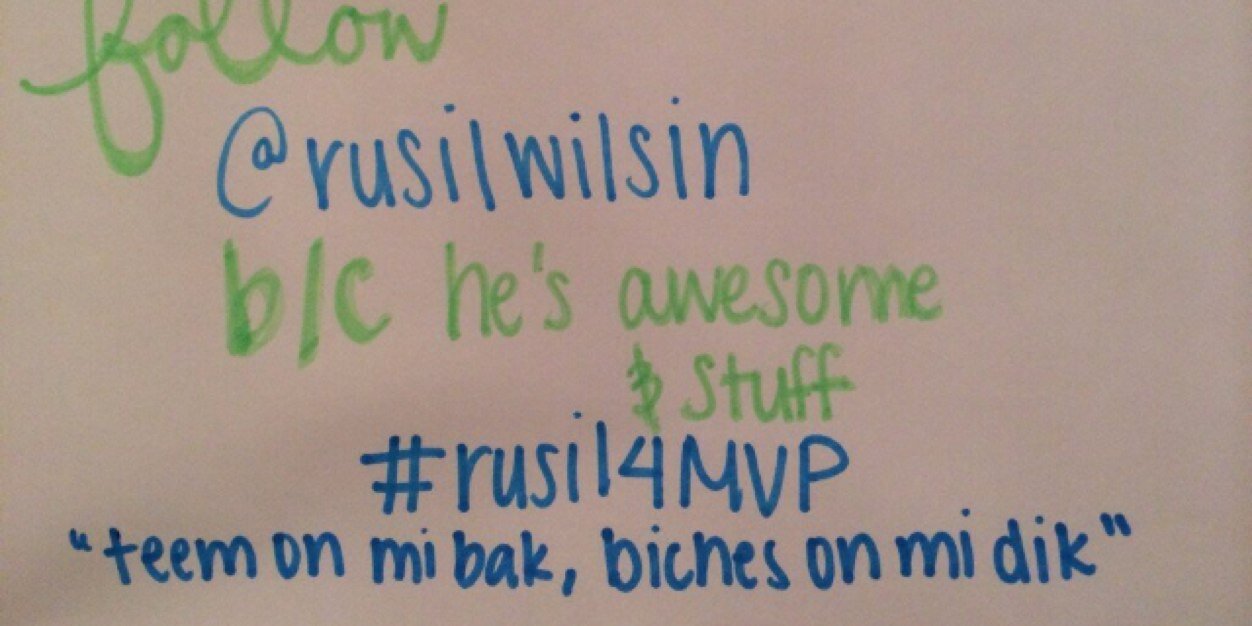 follow
@rusilwilsin
b/c he's awesome
& stuff
#rusil4MVP
"teem on mi bak, biches on mi dik"